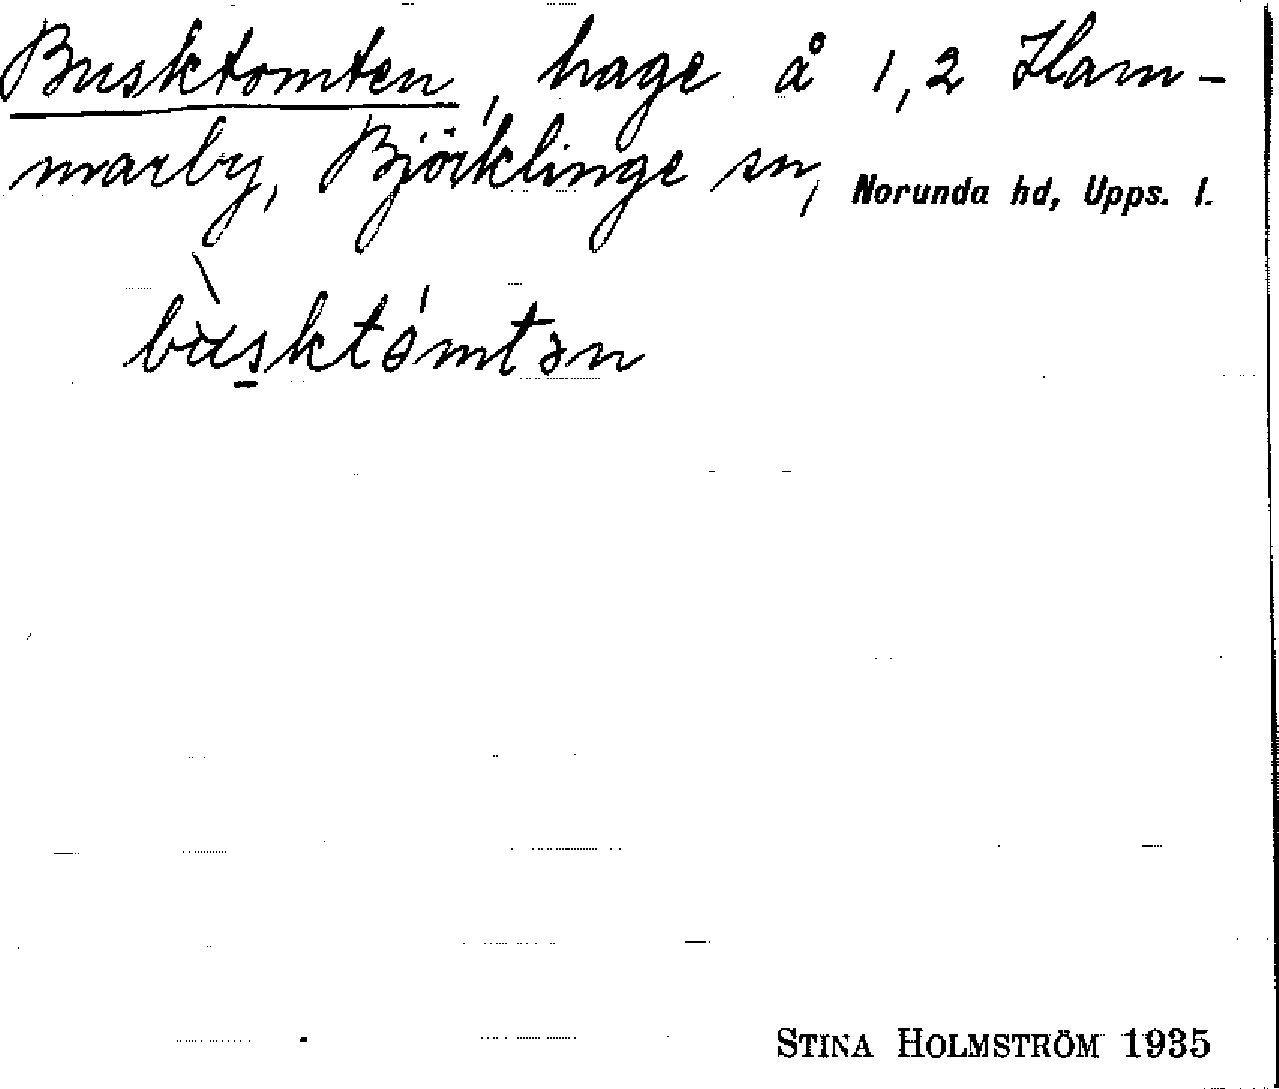 Busktomten, hage å 1,2 Ham-
marby, Björklinge sn, Norunda hd, Upps. l.
bùsktómtən
STINA HOLMSTRÖM 1935